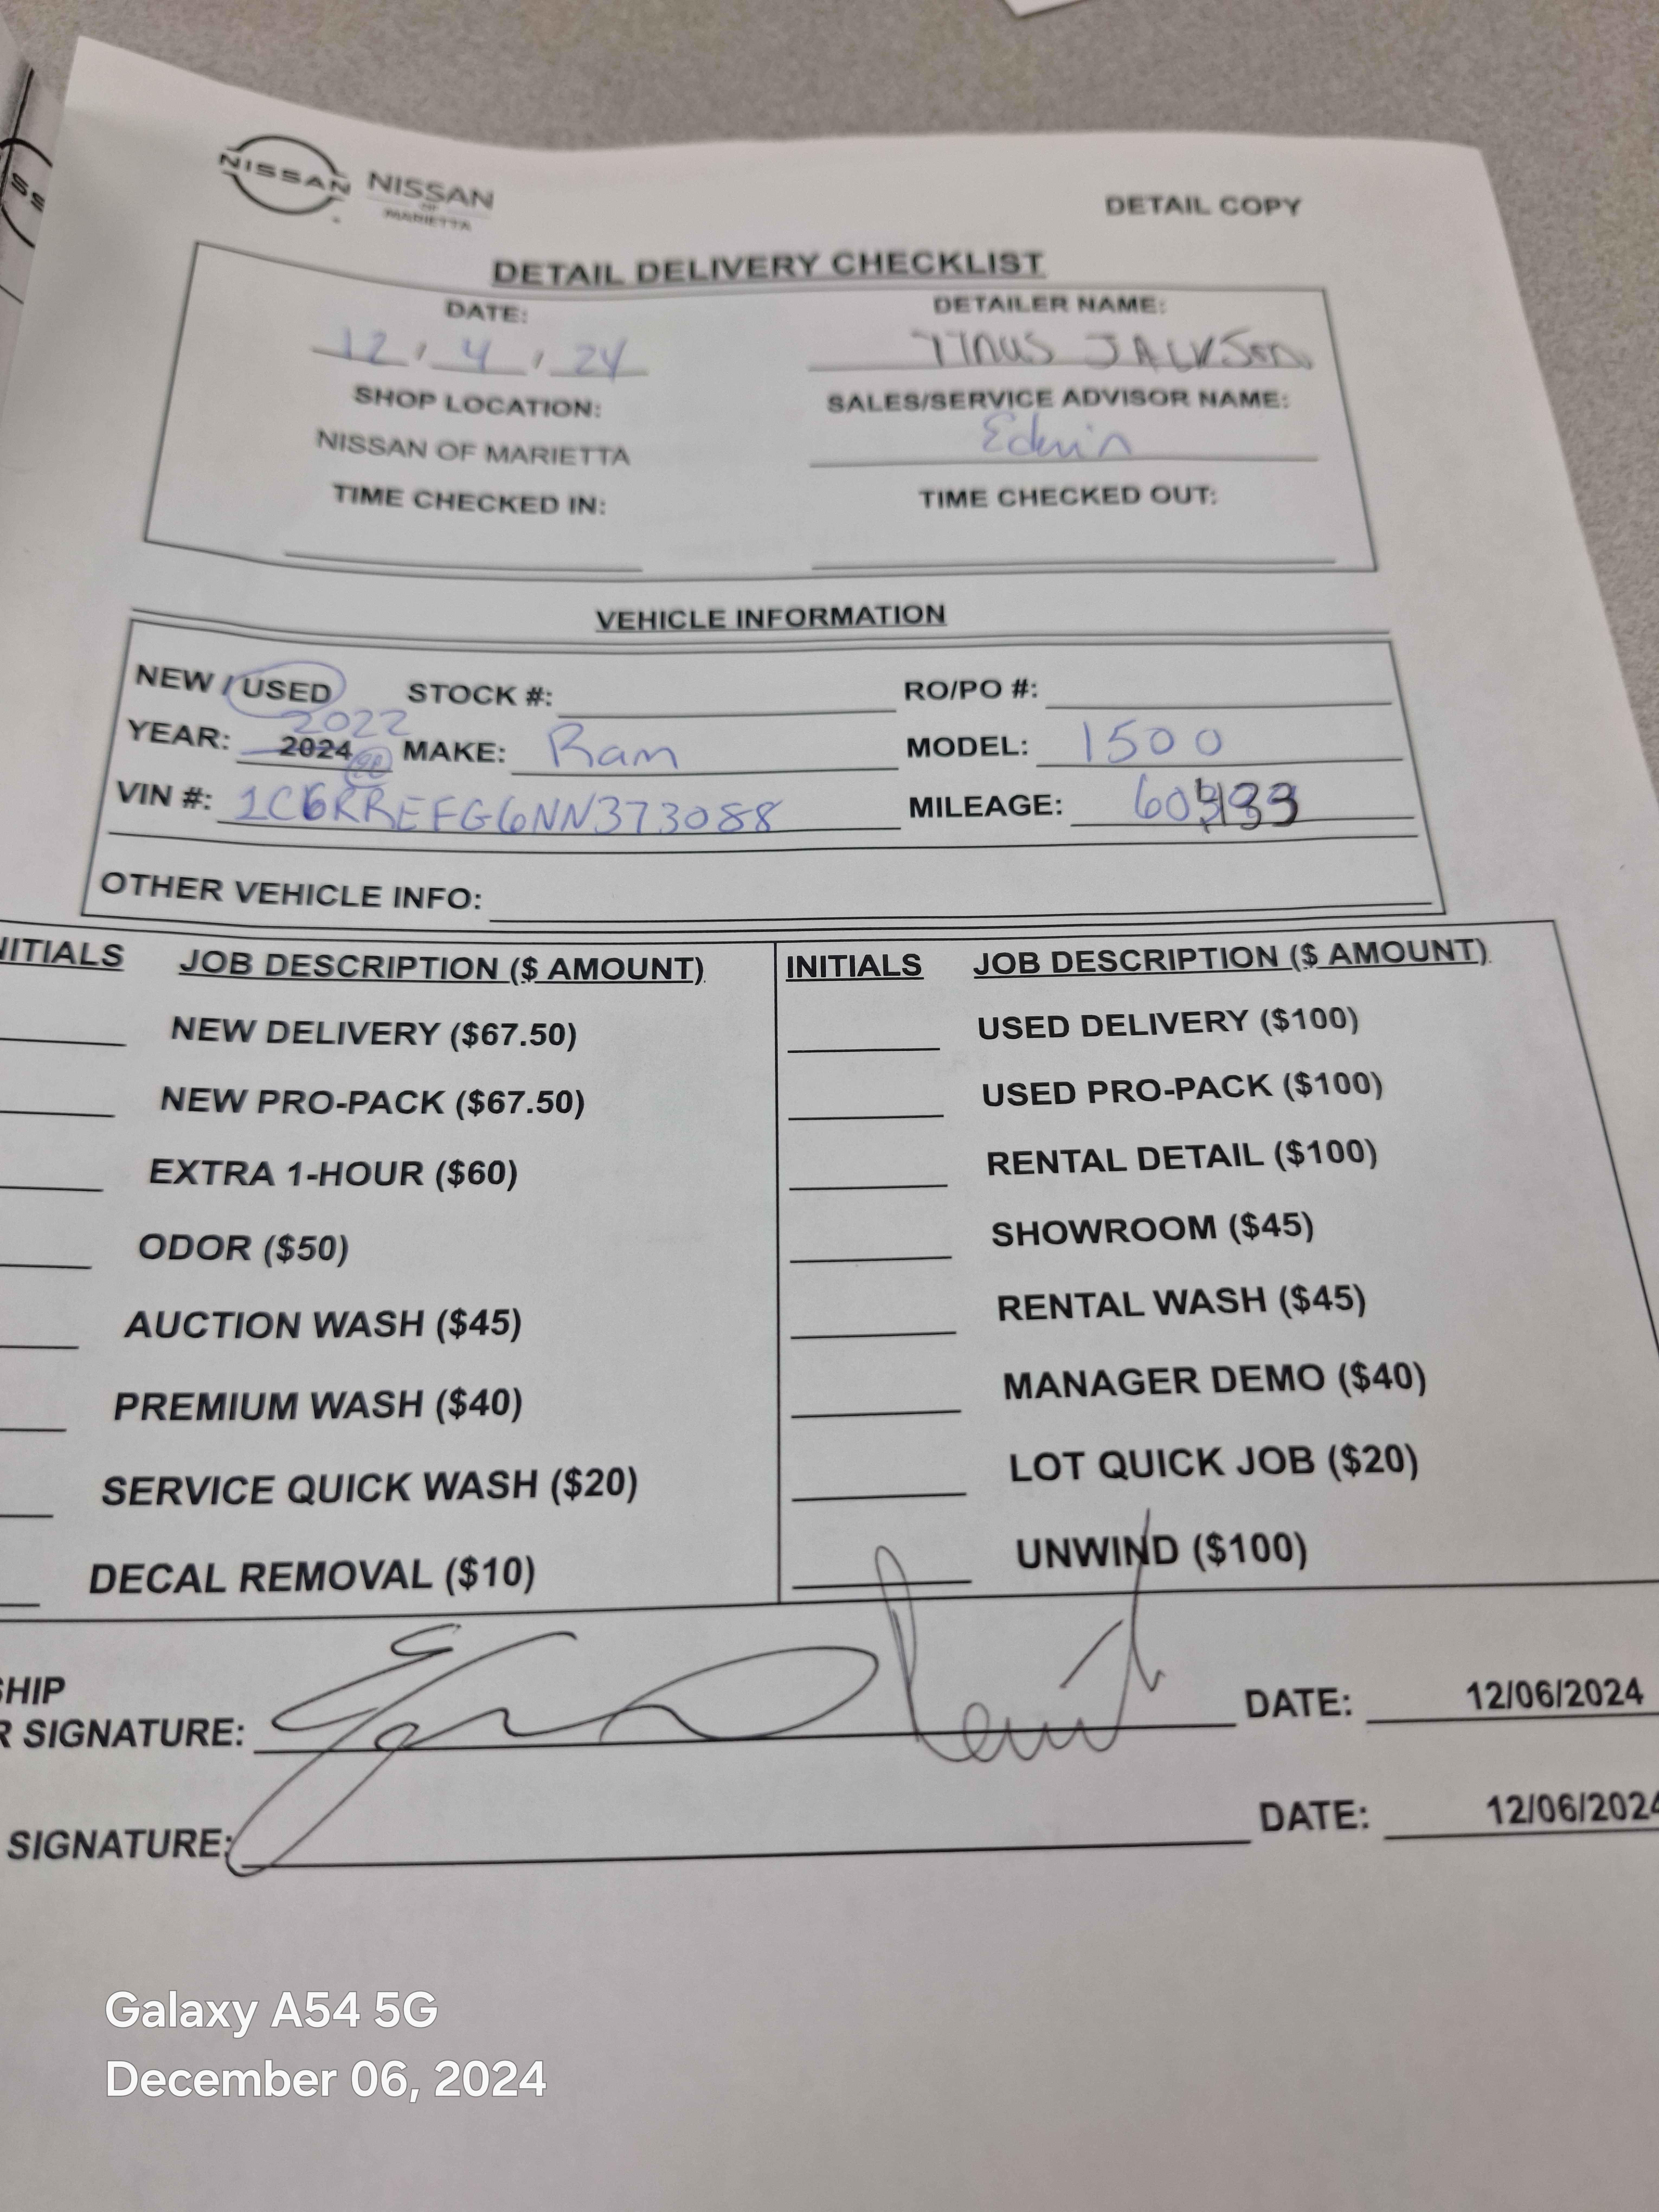 NISSAN NISSAN
OF
MARIETTA
DETAIL COPY
DETAIL DELIVERY CHECKLIST
DATE: DETAILER NAME:
12 / 4 / 24 TITUS JACKSON
SHOP LOCATION: SALES/SERVICE ADVISOR NAME:
NISSAN OF MARIETTA Edwin
TIME CHECKED IN: TIME CHECKED OUT:
VEHICLE INFORMATION
NEW / USED STOCK #: RO/PO #:
2022
YEAR: 2024 MAKE: Ram MODEL: 1500
VIN #: 1C6RREFG6NN373088 MILEAGE:
OTHER VEHICLE INFO:
NITIALS JOB DESCRIPTION ($ AMOUNT) INITIALS JOB DESCRIPTION ($ AMOUNT)
NEW DELIVERY ($67.50) USED DELIVERY ($100)
NEW PRO-PACK ($67.50) USED PRO-PACK ($100)
EXTRA 1-HOUR ($60) RENTAL DETAIL ($100)
ODOR ($50) SHOWROOM ($45)
AUCTION WASH ($45) RENTAL WASH ($45)
PREMIUM WASH ($40) MANAGER DEMO ($40)
SERVICE QUICK WASH ($20) LOT QUICK JOB ($20)
DECAL REMOVAL ($10) UNWIND ($100)
SHIP
R SIGNATURE: DATE: 12/06/2024
SIGNATURE: DATE: 12/06/2024
Galaxy A54 5G
December 06, 2024